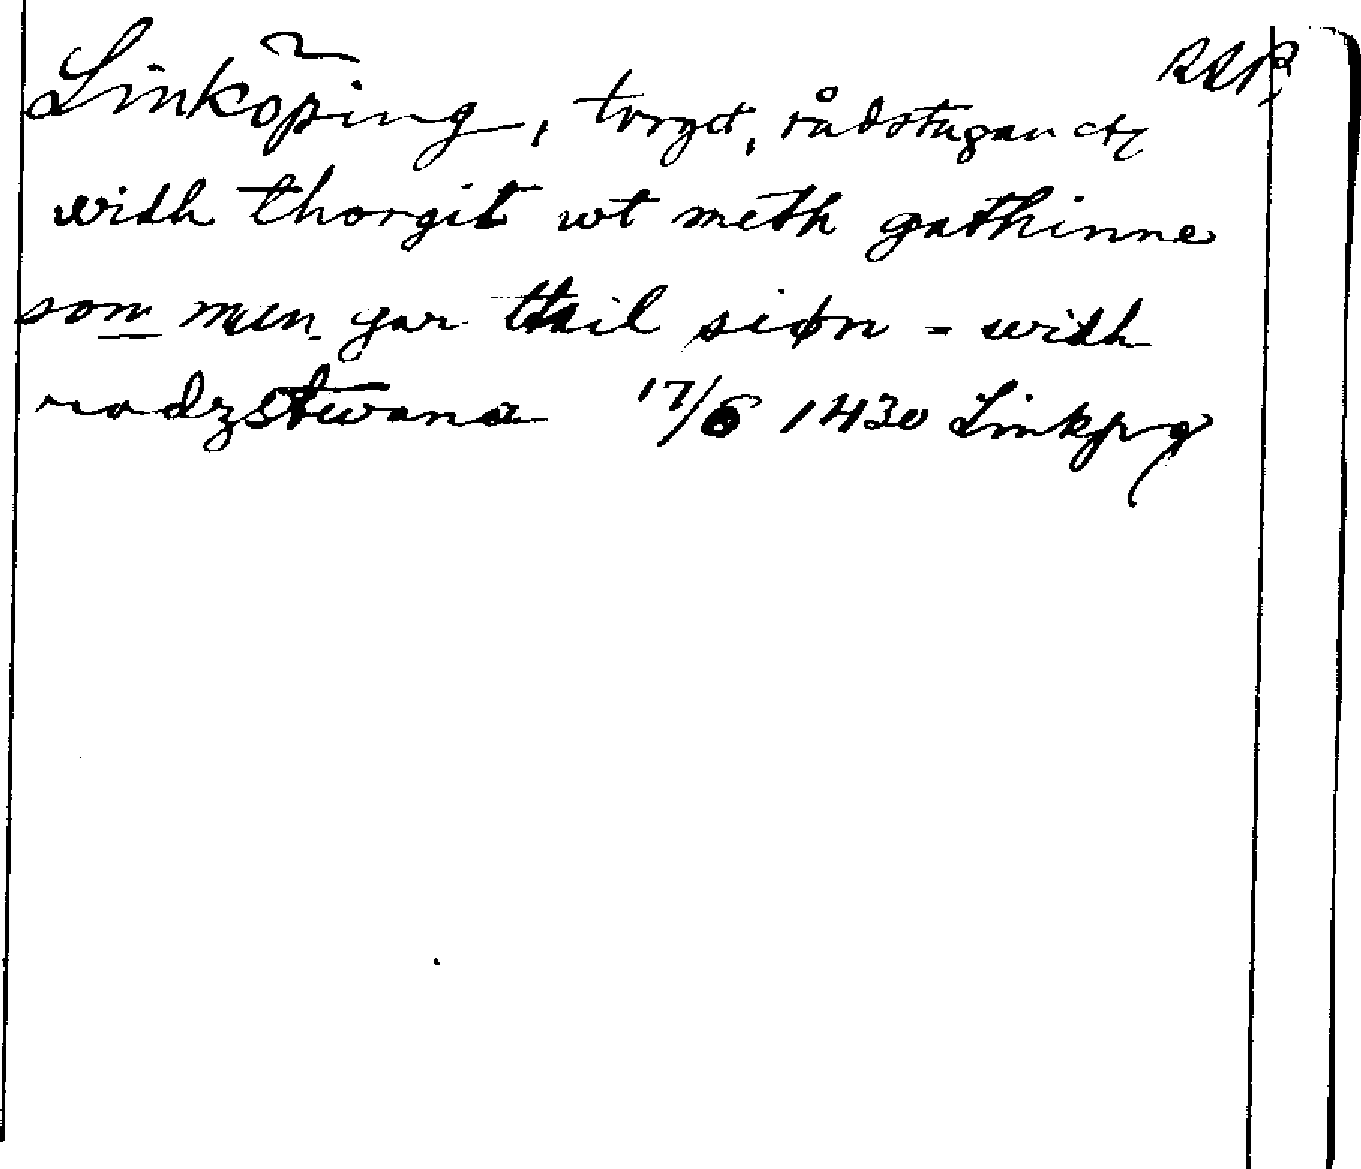 Linköping, torget, rådstugan etc RAP,
widh thorgit wt meth gathinne
som men gar thil siøn - widh
radzstwona 17/6 1430 Linkpg